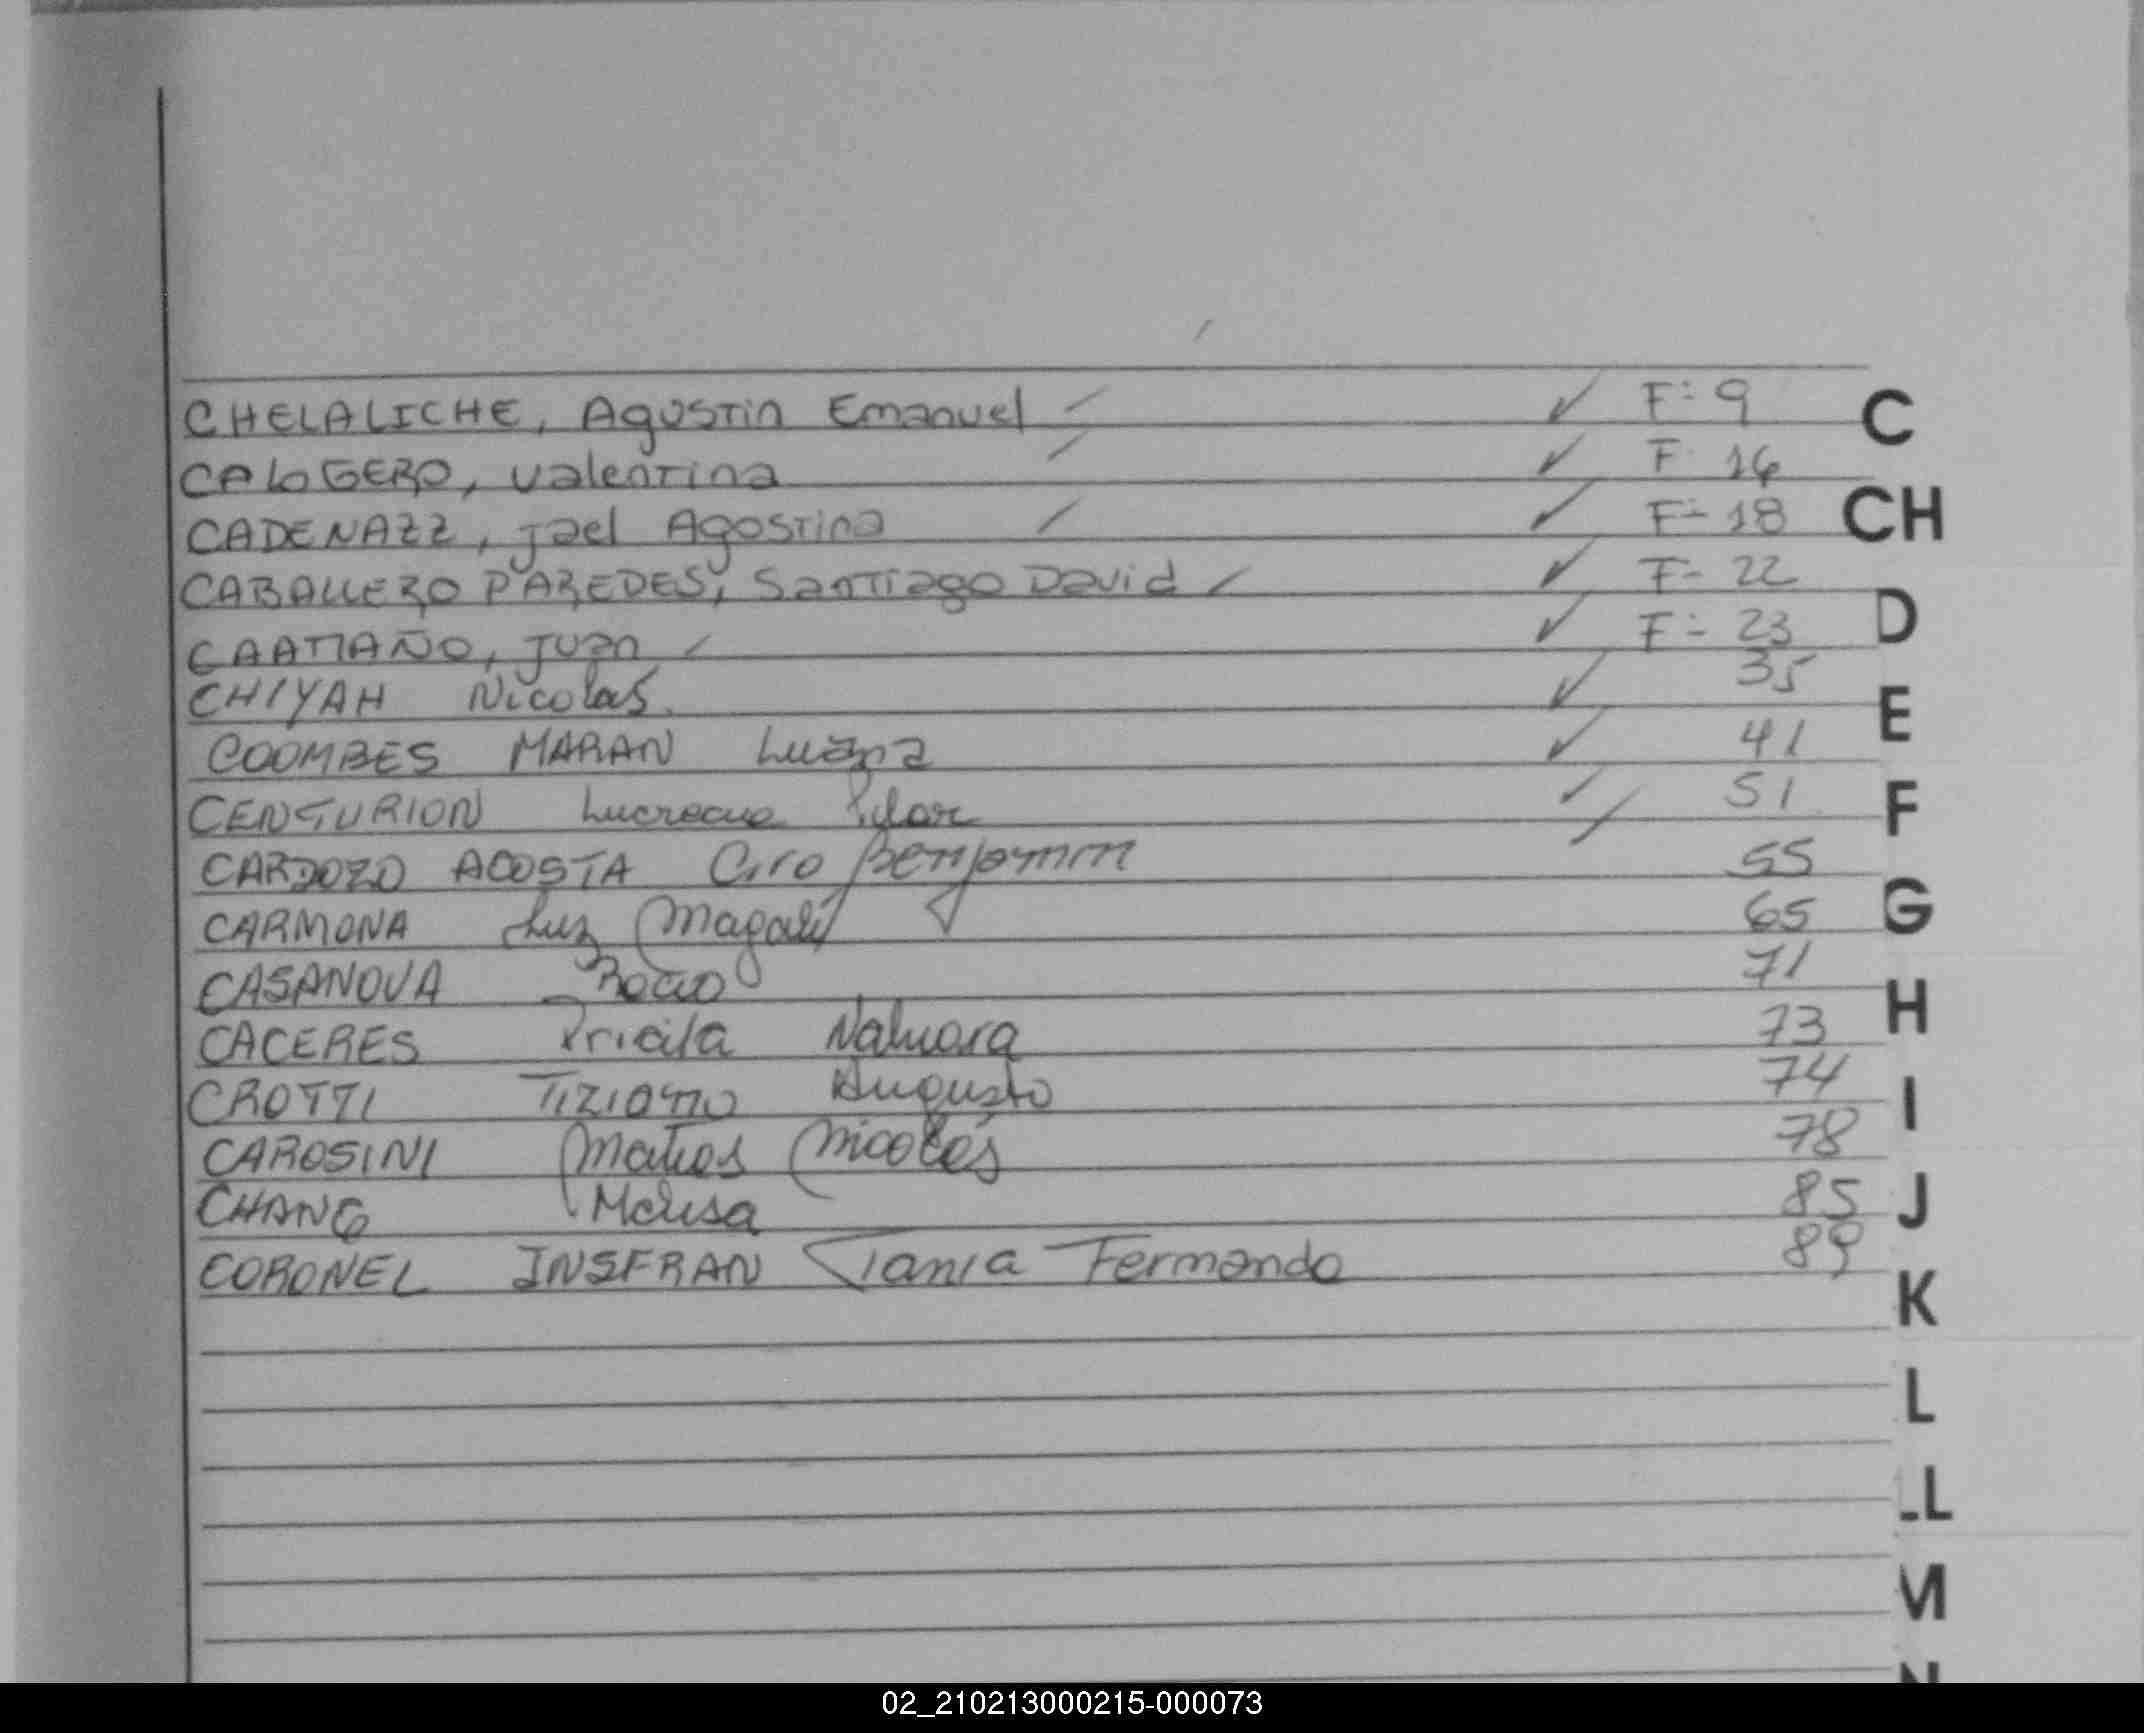 CHELALICHE, Agustin Emanuel ✓ F: 9
CALOGERO, Valentina ✓ F: 14
CADENAZZ, Jael Agostina ✓ F- 18
CABALLERO PAREDES, Santiago David ✓ F- 22
CAATIAÑO, Juan ✓ F- 23
CHIYAH Nicolas. ✓ 35
COOMBES MARAN Luana ✓ 41
CENTURION Lucrecia Pilar ✓ 51
CARDOZO ACOSTA Ciro Benjamin 55
CARMONA Luz Magalí 65
CASANOVA Rocio 71
CACERES Pricila Nahiara 73
CROTTI Tiziano Augusto 74
CAROSINI Matias Nicolás 78
CHANG Melisa 85
CORONEL INSFRAN Tania Fernanda 89
C
CH
D
E
F
G
H
I
J
K
L
LL
M
N
02_210213000215-000073